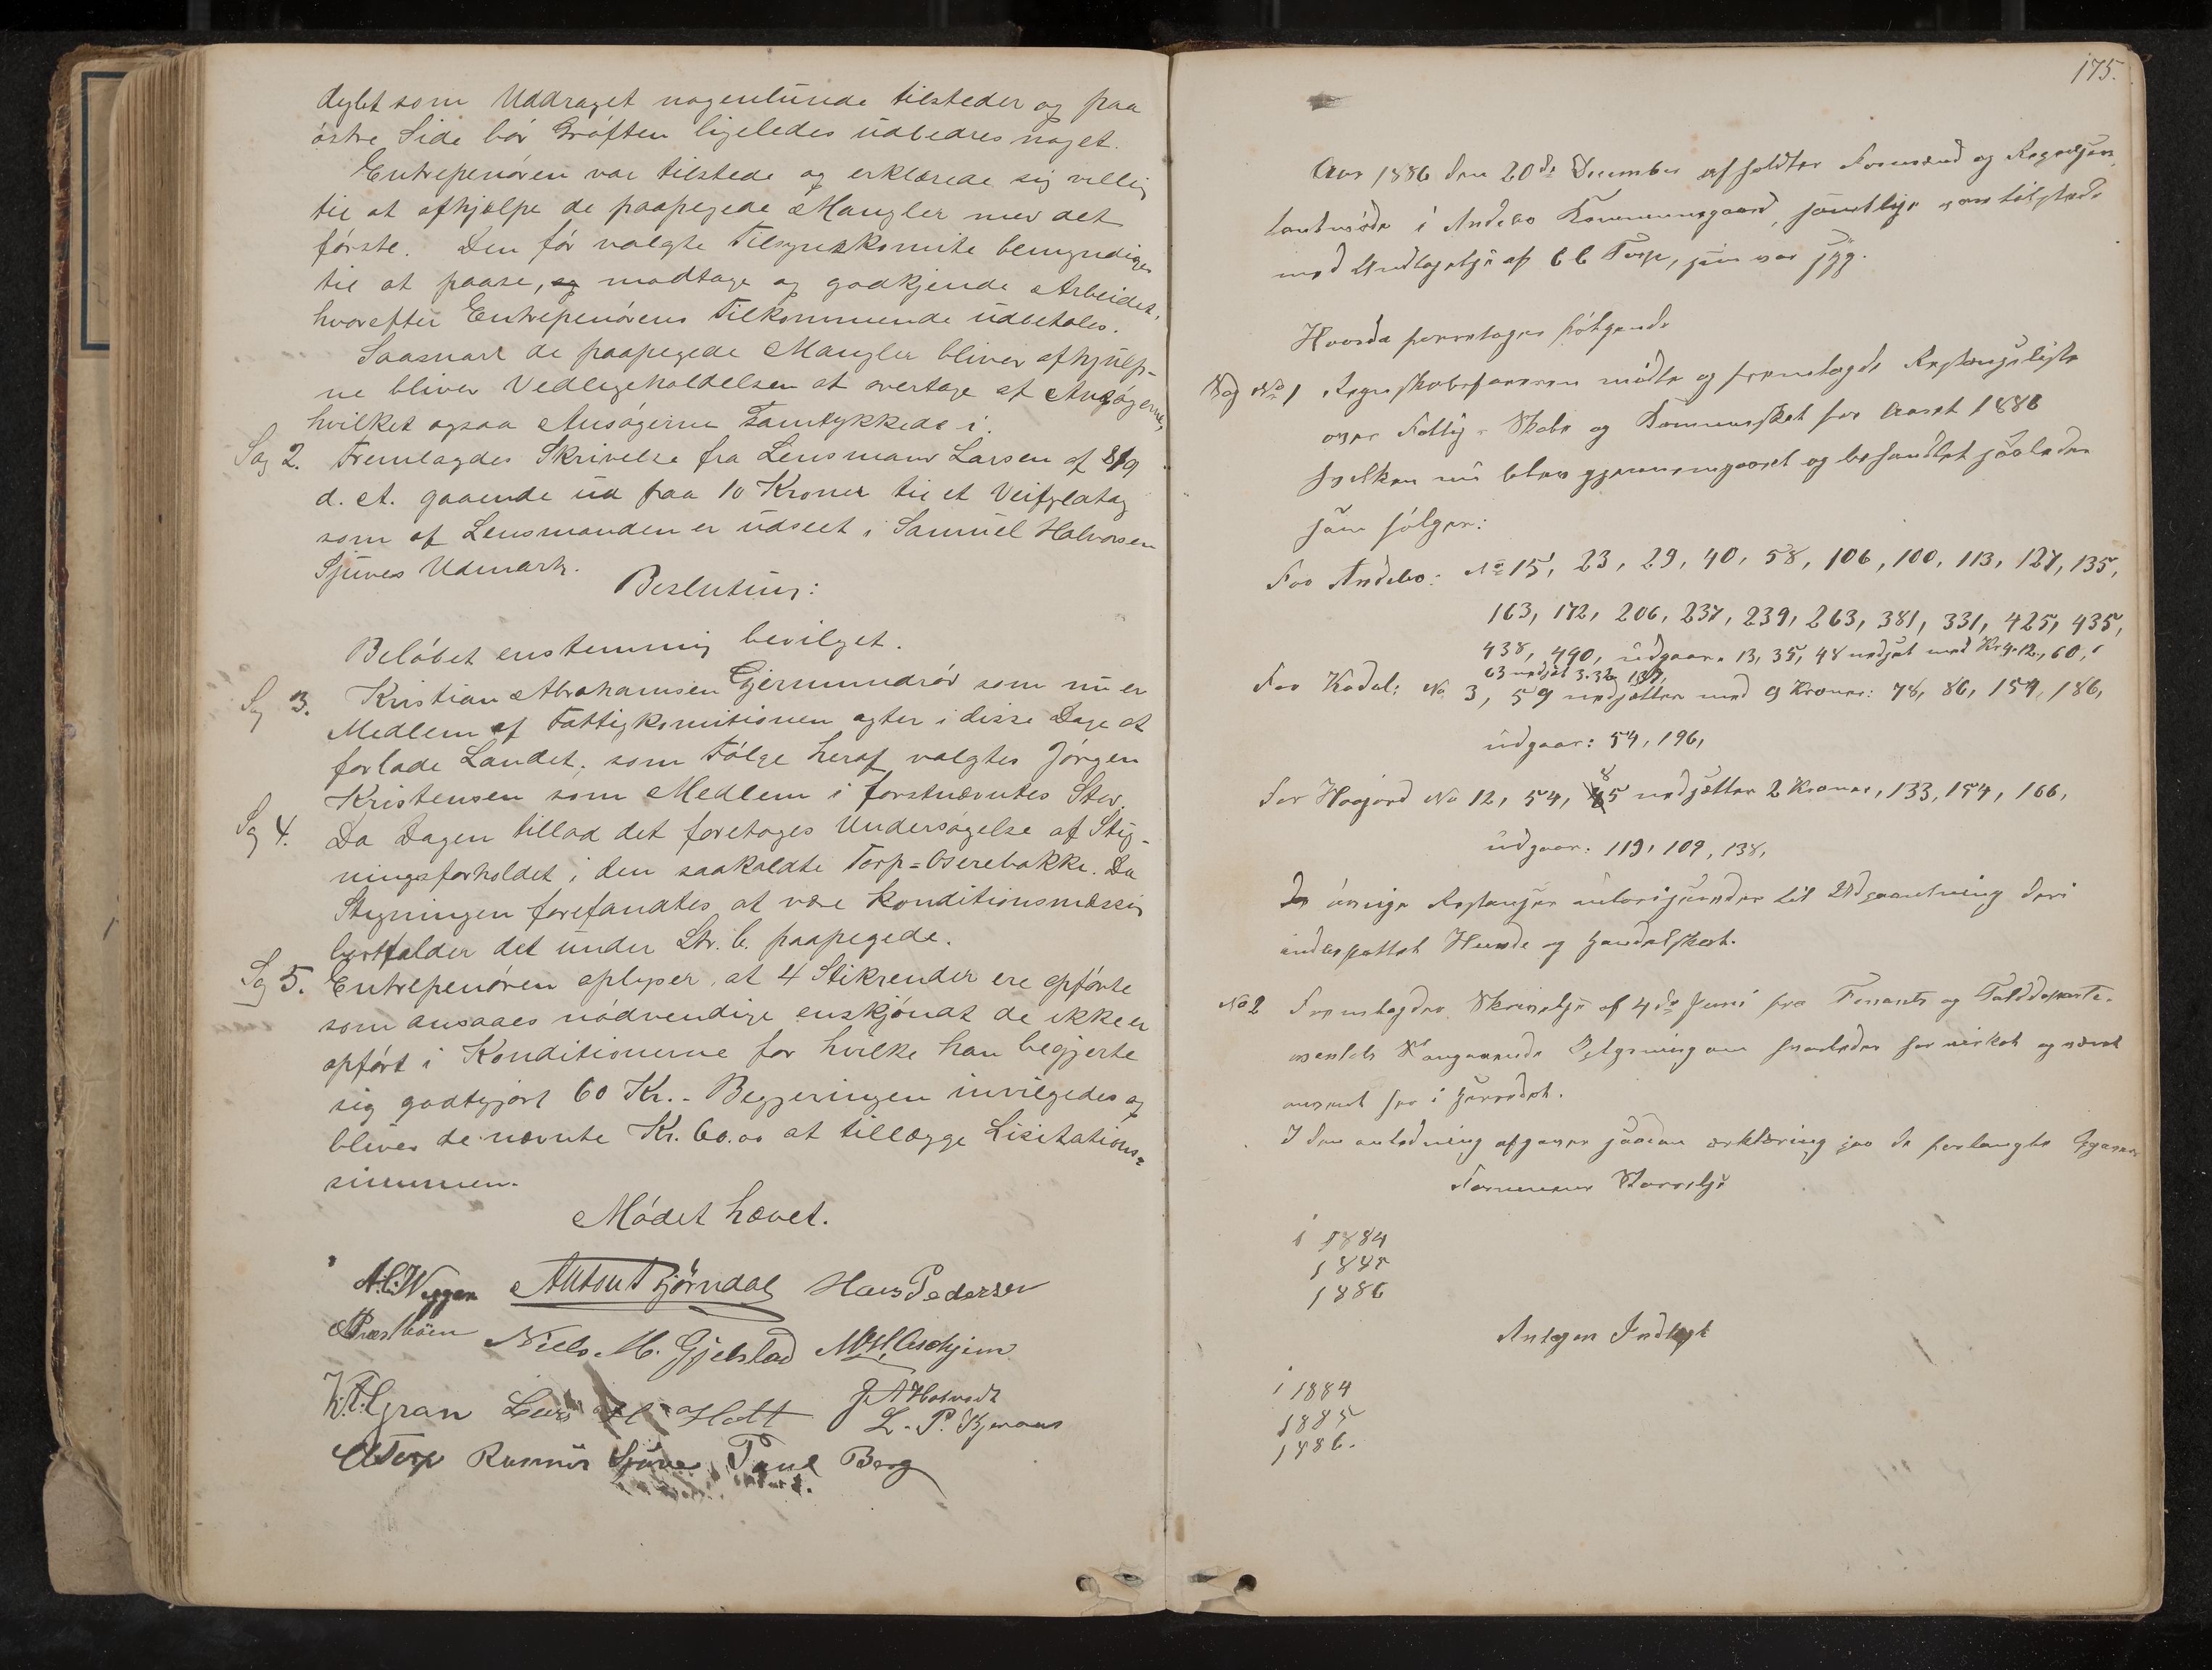 dybt som Uddraget nogenlunde tilsteder og paa
östre Side bör Gröften ligeledes udbedres noget.
Entrepenören var tilstede og erklærede sig villig
til at afhjælpe de paapegede Mangler med det
förste. Den för valgte Tilsynskomite bemyndiges
til at paase, og modtage og godkjende Arbeidet,
hvorefter Entrepenörens Tilkommende udbetales.
Saasnart de paapegede Mangler bliver afhjulp-
ne bliver Vedligeholdelsen at overtage af Ansögerne,
hvilket ogsaa Ansögerne samtykkede i.
Sag 2. Fremlagdes Skrivelse fra Lensmand Larsen af 8/9
d. A. gaaende ud paa 10 Kroner til et Veifyldtag
som af Lensmanden er udseet i Samuel Halvorsen
Sjuves Udmark.
Beslutning:
Belöbet enstemmig bevilget.
Sag 3. Kristian Abrahamsen Gjermundröd som nu er
Medlem af Fattigkomitionen agter i disse Dage at
forlade Landet; som Fölge heraf valgtes Jörgen
Kristensen som Medlem i förstnævntes Sted.
Sag 4. Da Dagen tillod det foretoges Undersögelse af Stig-
ningsforholdet i den saakaldte Torp=Oserebakke. Da
Stigningen forefandtes at være konditionsmæssig
bortfalder det under Ltr. C. paapegede.
Sag 5. Entrepenören oplyser, at 4 Stikrender ere opförte
som ansaaes nödvendige enskjöndt de ikke er
opfört i Konditionerne for hvilke han begjerte
sig godtgjort 60 Kr. - Begjeringen invilgedes og
blives de nævnte Kr. 60.00 at tillægge Lisitations=
summen.
Mödet hævet.
Anton Bjørndal Hans Pedersen
Niels M. Gjelstad
K. A. Gran Lars H. Holt J A Hotvedt
L. P. Bjeraas
C C Torp Rasmus Sjuve Paul Berg
175.
Aar 1886 den 20de December afholdtes Formænd og Repræsen
tantmöde i Andebo Kommunegaard, samtlige var tilstede
med Undtagelse af C C Torp, som var syg.
Hvorda foretoges fölgende
Sag No 1 Regnskabsføreren mödte og fremlagde Restanseliste
over Fattig- Skole og Kommuneskat for Aaret 1886
hvilken nu blev gjennemgaaet og behandlet saaledes
som fölger:
For Andebo: No 15, 23, 29, 40, 58, 106, 100, 113, 127, 135,
163, 172, 206, 237, 239, 263, 381, 331, 425, 435,
438, 490, udgaar. 13, 35, 48 nedsat med Kr 4.12, 60,
63 nedsat 3.32 137,
For Kodal: No 3, 59 nedsættes med 9 Kroner: 78, 86, 154, 186,
udgaar: 54, 196,
For Höijord No 12, 54, 85 nedsættes 2 Kroner, 133, 154, 166,
udgaar: 119, 109, 138,
De övrige Restanser autoriseredes til Udpantning deri
indbefattet Hunde og Handelskat.
No 2 Fremlagdes Skrivelse af 4de Juni fra Finants og Tolddeparte-
mentet Oplysning om hvorledes har virket og været
anvendt her i Herredet.
I den anledning afgaves saadan erklæring paa de forlangte Opgaver
Formues Størrelse
i 1884
1885
1886
Antagen Indtægt
i 1884
1885
1886.